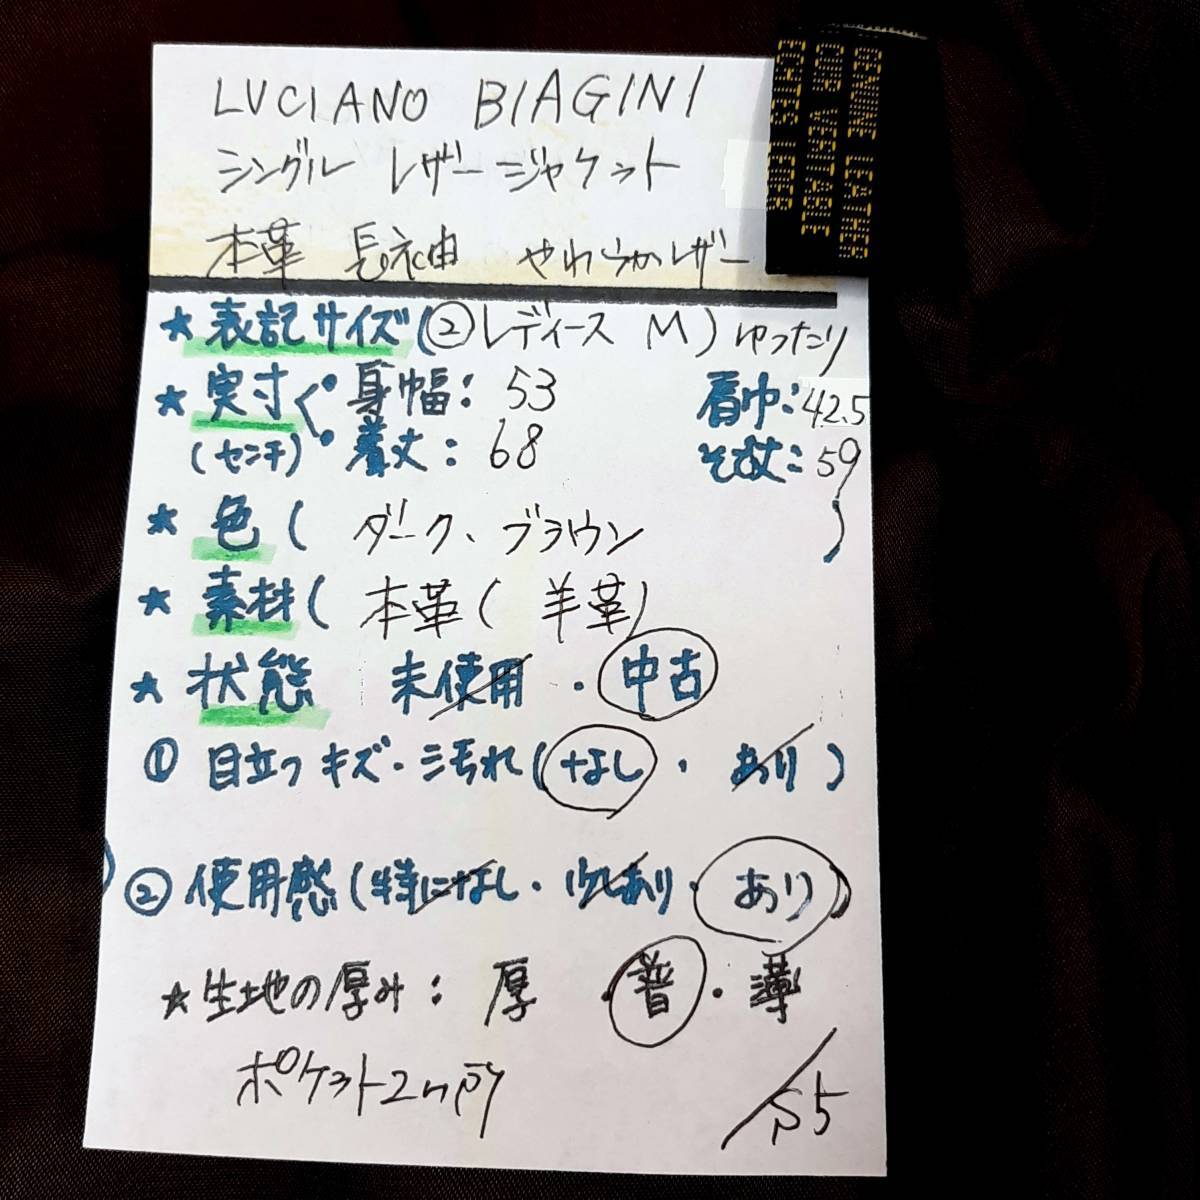 LUCIANO BIAGINI
シングル レザージャケット
本革 長袖 やわらかレザー
GENUINE LEATHER
CUIR VERITABLE
ECHTES LEDER
★ 表記サイズ(② レディース M) ゆったり
★ 実寸 • 身幅: 53 肩巾: 42.5
(センチ) • 着丈: 68 そで丈: 59
★ 色 ( ダーク、ブラウン )
★ 素材 ( 本革 ( 羊革)
★ 状態 未使用 ・ 中古
① 目立つキズ・汚れ ( なし ・ あり )
② 使用感 ( 特になし ・ 少しあり ・ あり )
★ 生地の厚み: 厚 ・ 普 ・ 薄
ポケット2ヶ所